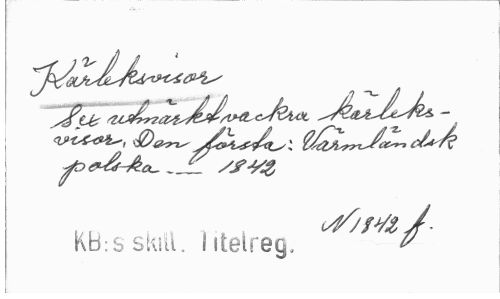 Kärleksvisor
Sex utmärkt vackra kärleks-
visor. Den första: Värmländsk
polska. — 1842
N 1842 f.
KB:s skill. Titelreg.